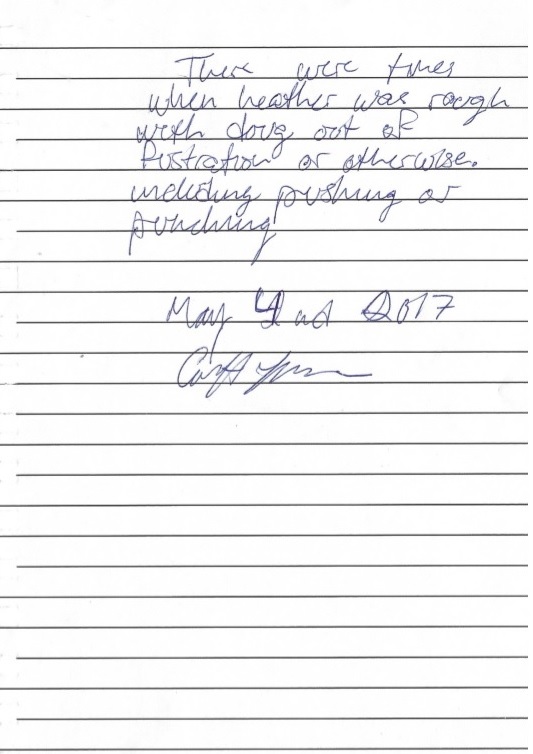 There were times
when heather was rough
with doug out of
frustration or otherwise.
including pushing or
punching
May 2nd 2017